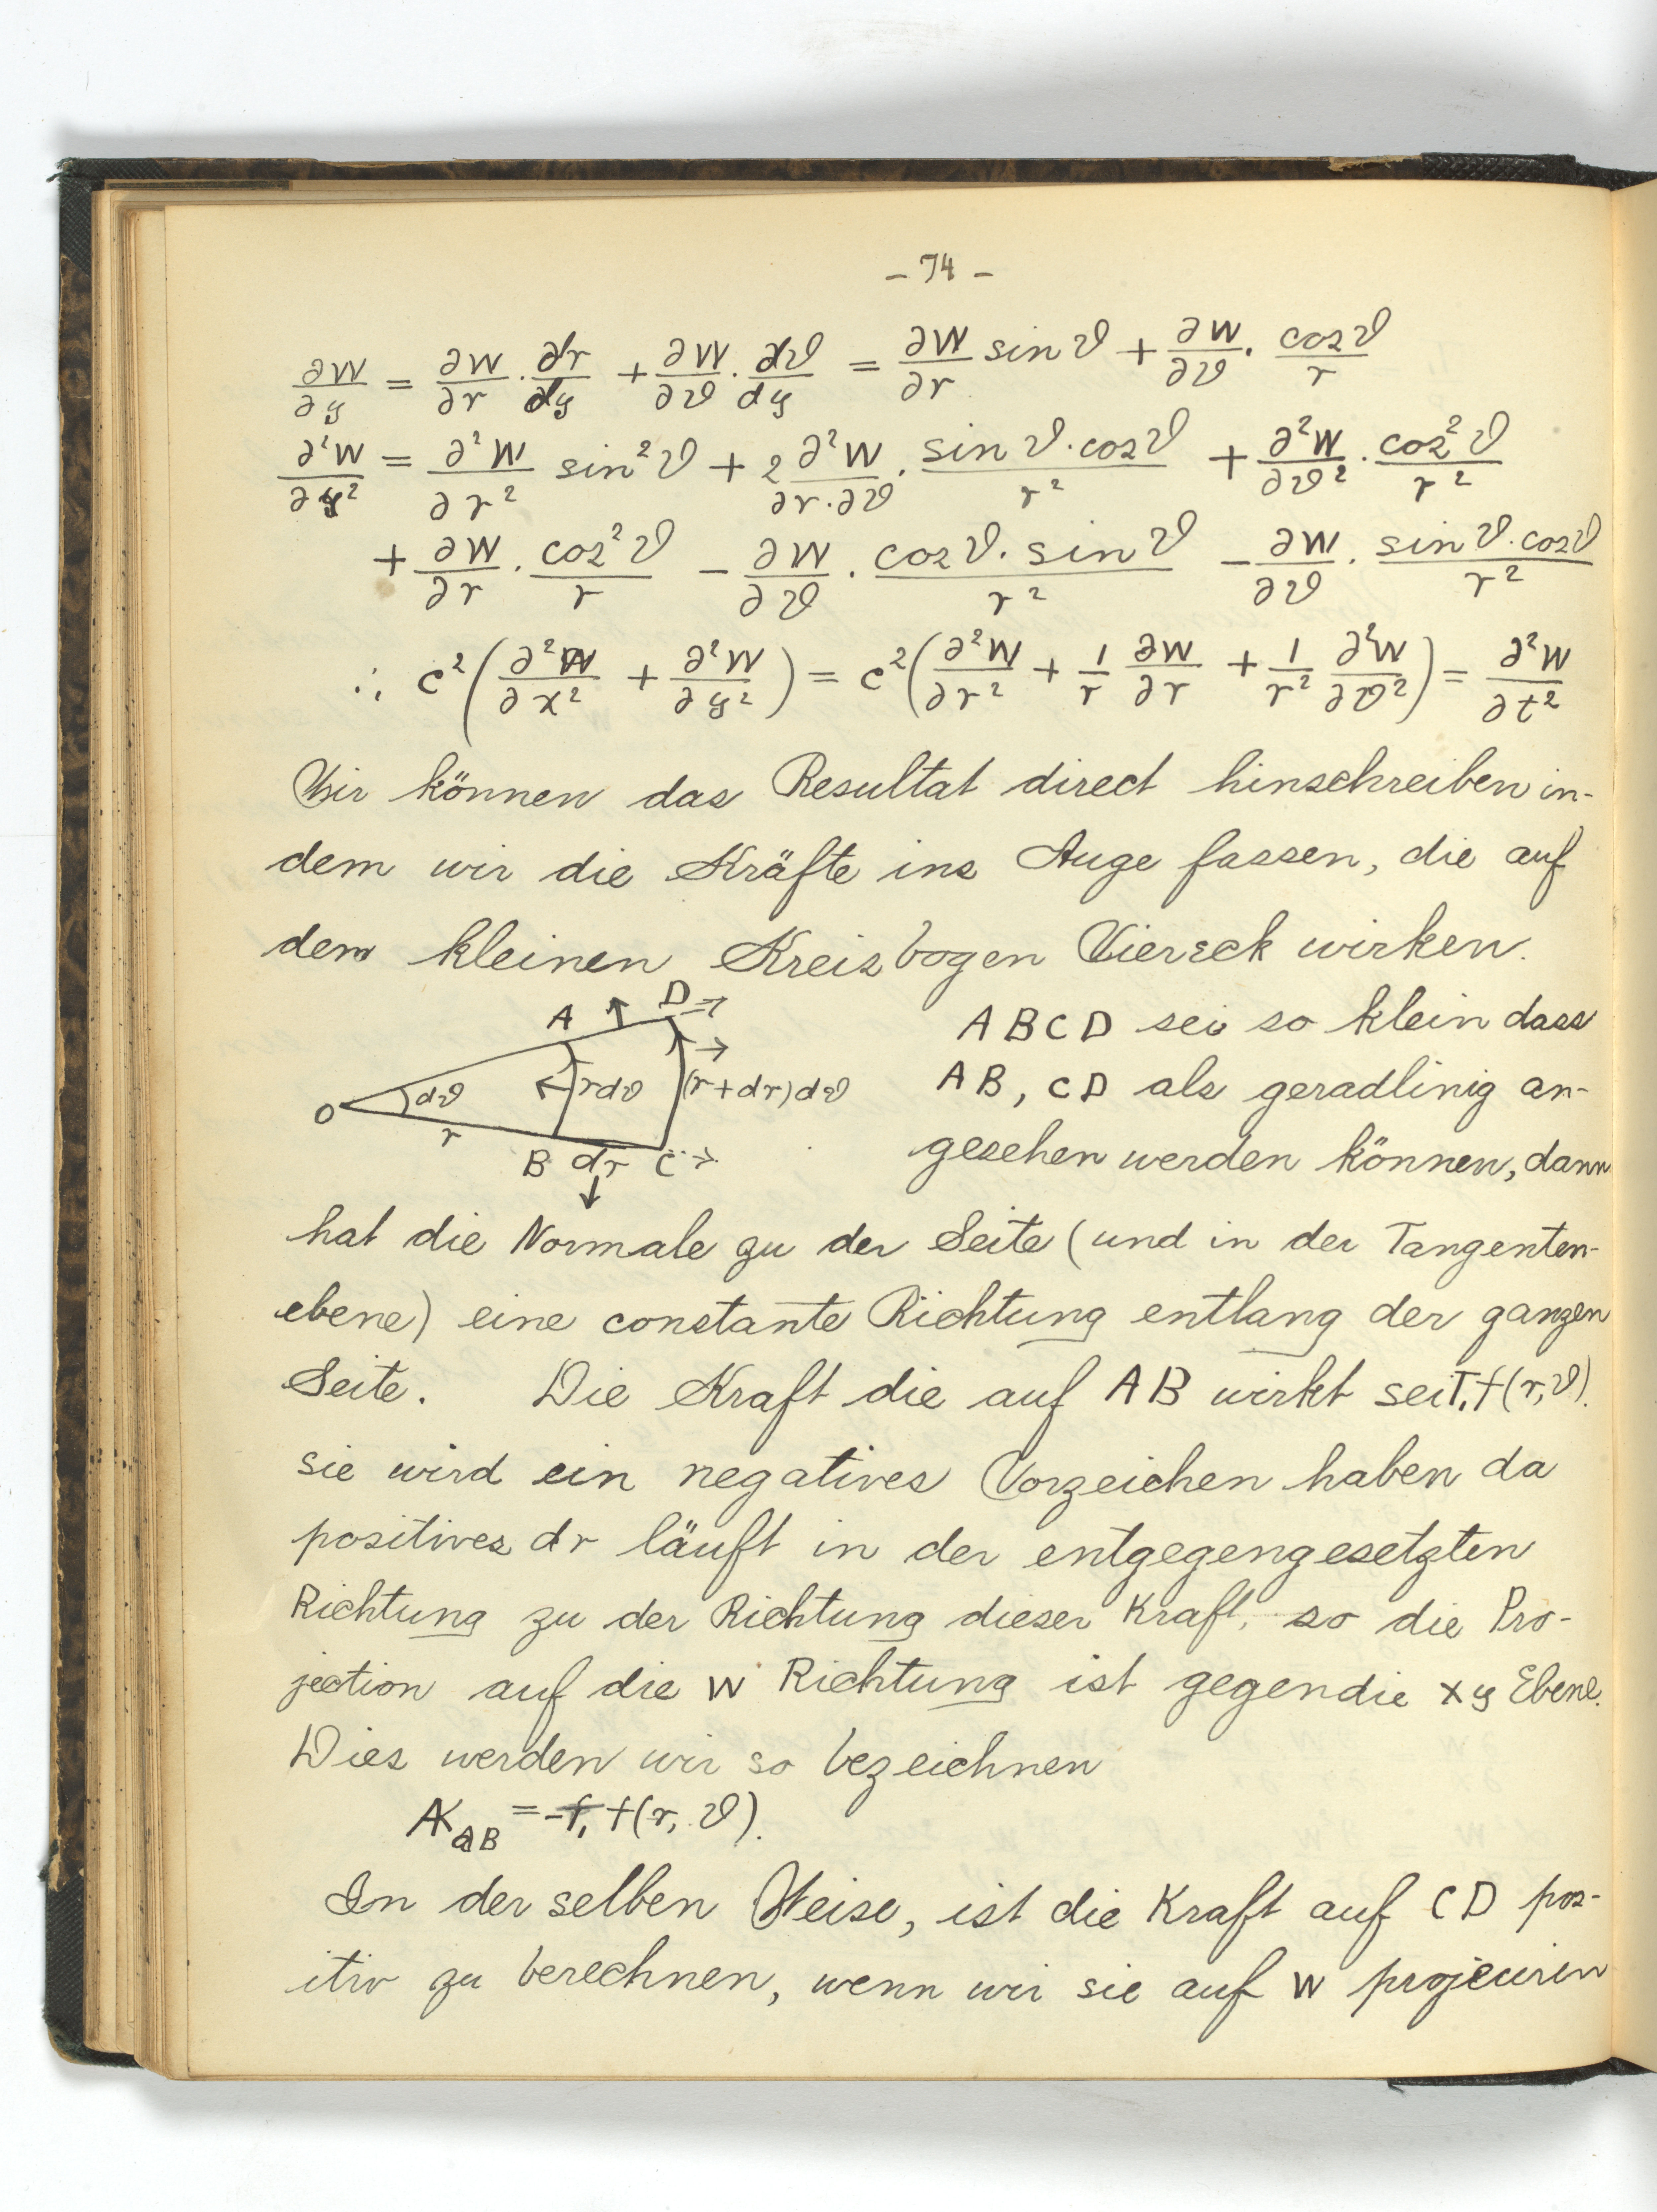 - 74 -
∂W/∂y = ∂W/∂r · ∂r/∂y + ∂W/∂ϑ · ∂ϑ/∂y = ∂W/∂r sin ϑ + ∂W/∂ϑ · cos ϑ/r
∂²W/∂y² = ∂²W/∂r² sin²ϑ + 2 ∂²W/∂r·∂ϑ · sin ϑ · cos ϑ/r² + ∂²W/∂ϑ² · cos²ϑ/r²
+ ∂W/∂r · cos²ϑ/r − ∂W/∂ϑ · cos ϑ · sin ϑ/r² − ∂W/∂ϑ · sin ϑ · cos ϑ/r²
∴ c² (∂²W/∂x² + ∂²W/∂y²) = c² (∂²W/∂r² + 1/r ∂W/∂r + 1/r² ∂²W/∂ϑ²) = ∂²W/∂t²
Wir können das Resultat direct hinschreiben in-
dem wir die Kräfte ins Auge fassen, die auf
dem kleinen Kreisbogen Viereck wirken.
A D
O dϑ rdϑ (r+dr)dϑ
r
B dr C
A B C D sei so klein dass
A B, C D als geradlinig an-
gesehen werden können, dann
hat die Normale zu der Seite (und in der Tangenten-
ebene) eine constante Richtung entlang der ganzen
Seite. Die Kraft die auf A B wirkt sei T₁ f(r, ϑ).
sie wird ein negatives Vorzeichen haben da
positives dr läuft in der entgegengesetzten
Richtung zu der Richtung dieser Kraft, so die Pro-
jection auf die W Richtung ist gegen die x y Ebene.
Dies werden wir so bezeichnen
K_AB = - f(r, ϑ).
In der selben Weise, ist die Kraft auf C D pos-
itiv zu berechnen, wenn wir sie auf W projeciren